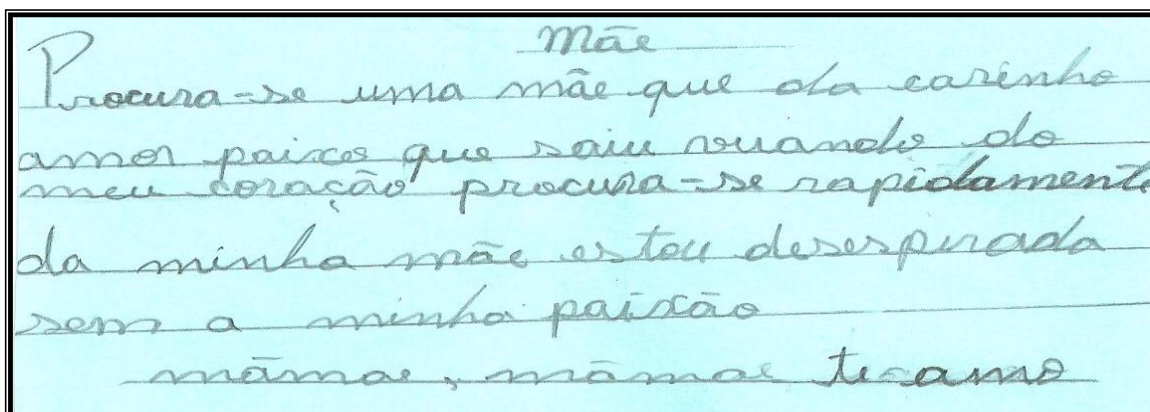 Mãe
Procura-se uma mãe que da carinho
amor paixao que saiu vuando do
meu coração procura-se rapidamente
da minha mãe estou desesperada
sem a minha paixão
mãmae, mãmae te amo